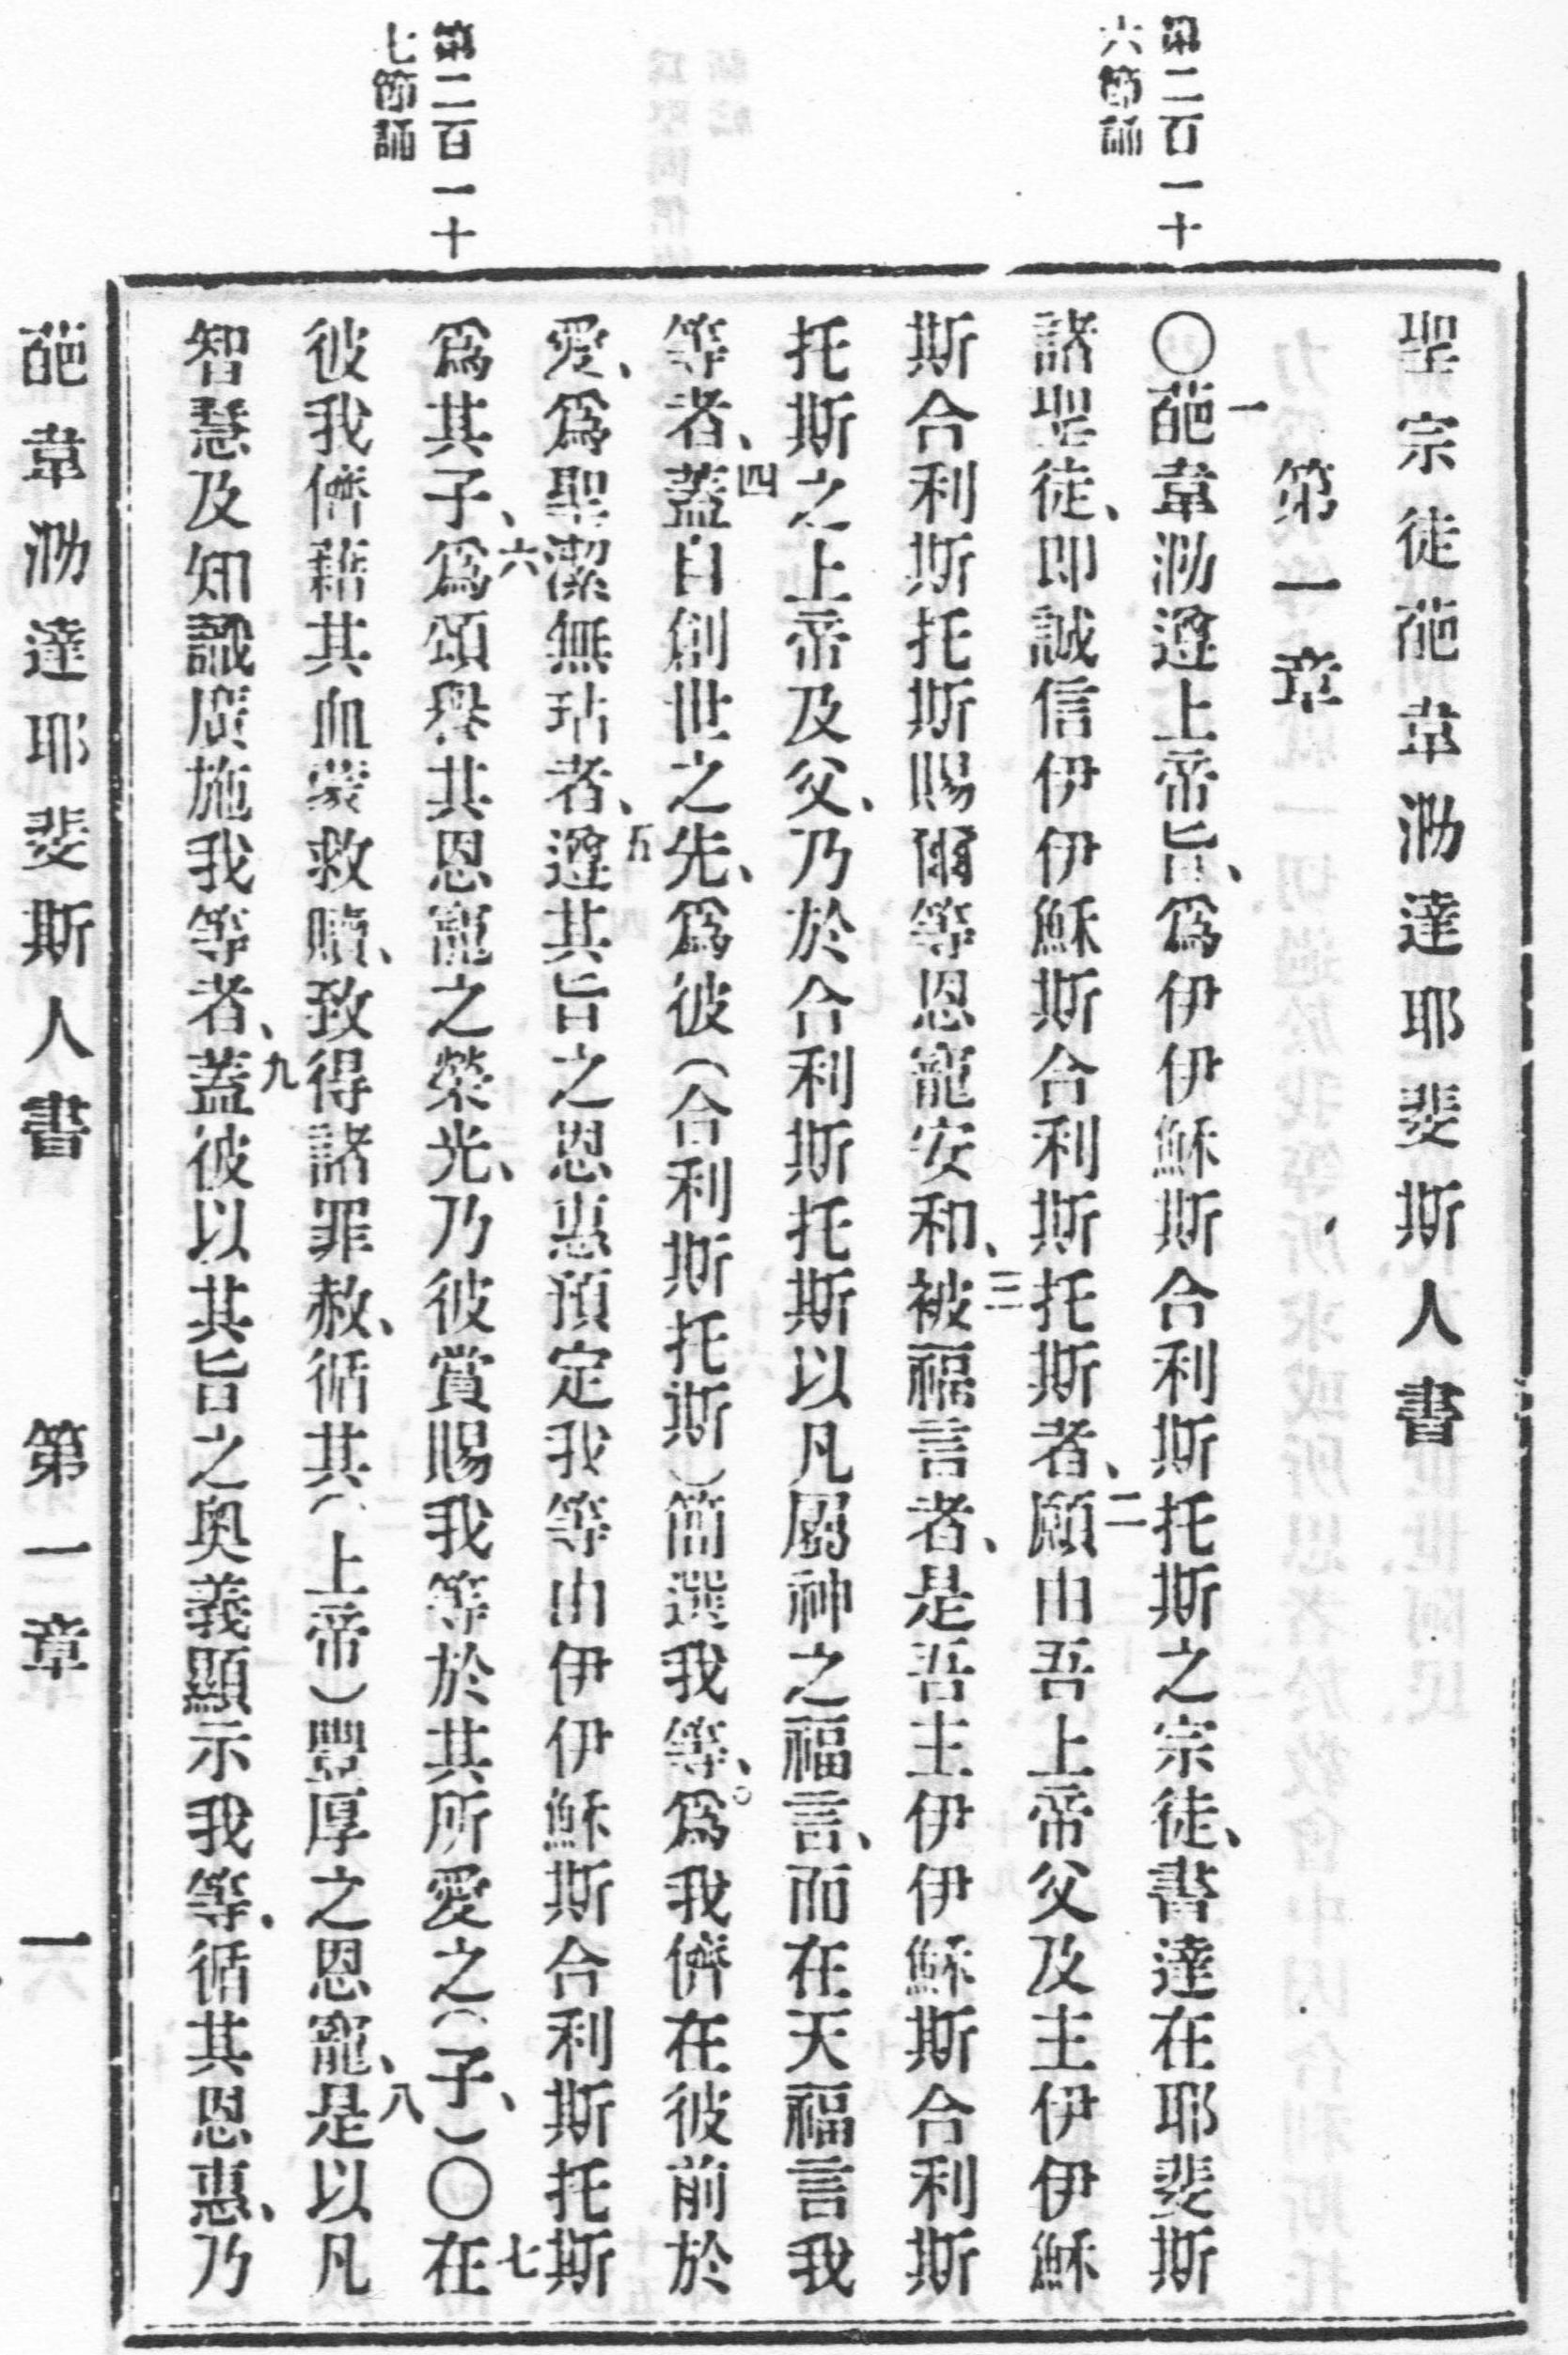 第二百一十
六節誦
第二百一十
七節誦
聖宗徒葩韋泐達耶斐斯人書
第一章
〇一葩韋泐遵上帝旨、爲伊伊穌斯合利斯托斯之宗徒、書達在耶斐斯
諸聖徒、即誠信伊伊穌斯合利斯托斯者、二願由吾上帝父及主伊伊穌
斯合利斯托斯賜爾等恩寵安和、三被福言者、是吾主伊伊穌斯合利斯
托斯之上帝及父、乃於合利斯托斯以凡屬神之福言、而在天福言我
等者、四蓋自創世之先、爲彼（合利斯托斯）簡選我等、爲我儕在彼前於
愛、爲聖潔無玷者、五遵其旨之恩惠預定我等由伊伊穌斯合利斯托斯
爲其子、六爲頌譽其恩寵之榮光、乃彼賞賜我等於其所愛之（子、）〇七在
彼我儕藉其血蒙救贖、致得諸罪赦、循其（上帝）豐厚之恩寵、八是以凡
智慧及知識廣施我等者、九蓋彼以其旨之奥義顯示我等、循其恩惠、乃
葩韋泐達耶斐斯人書 第一章 一